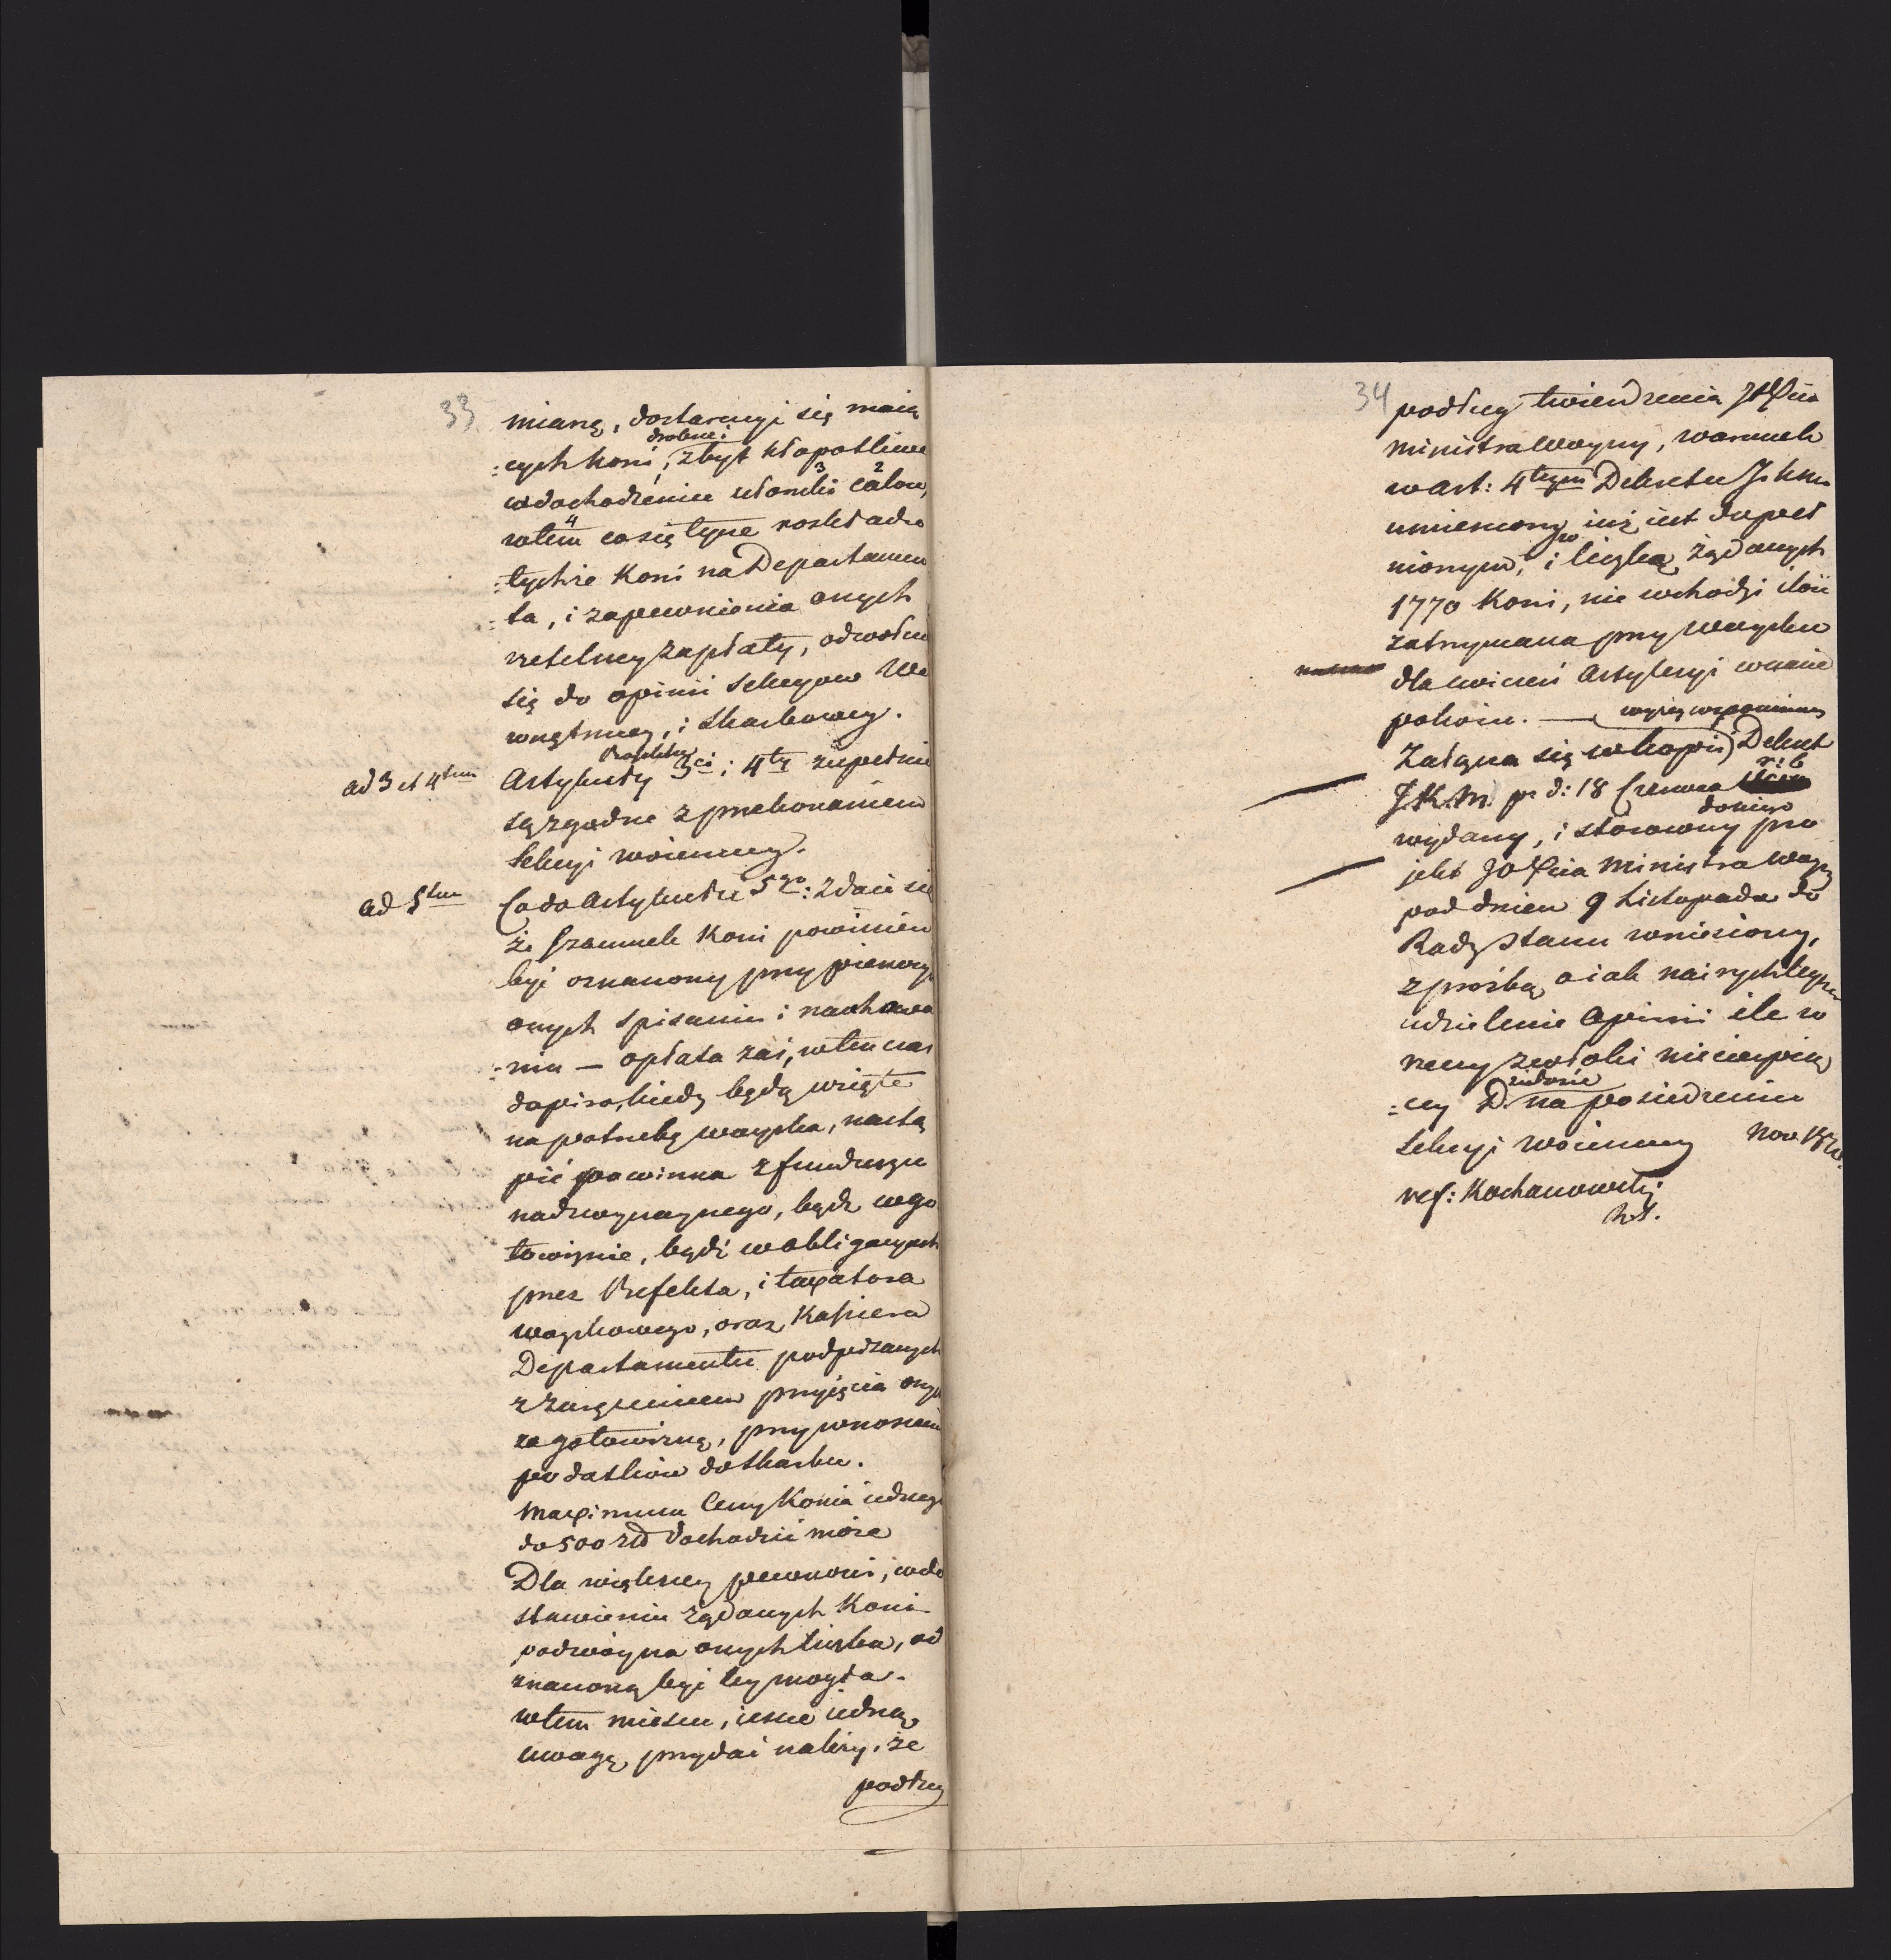 33
miarę, dostarczyć się maią
drobne i
=cych koni, zbyt kłopotliwe
w dochodzeniu ułomki 3 calow, 2
w tem 4 co się tycze rozkładu
=tychże Koni na Departamen
=ta, i zapewnienia onych
rzetelney zapłaty, odwołuie
się do opinii Sekcyow We
wnętrzney, i Skarbowey.
Proiektu
ad 3 et 4tum Artykuły 3ci i 4ty zupełnie
są zgodne z przekonaniem
Sekcyi woienney.
ad 5tum Co do Artykułu 5go: zdaie się
że szacunek Koni powinien
być oznaczony przy pierwszym
onych spisaniu i
=niu — opłata zaś, w ten czas
dopiro, kiedy będą wzięte
na potrzebę woyska, nastą
pić powinna z funduszu
nadzwyczaynego, bądź w go
towiznie, bądź w obligacyach
przez Prefekta, i taxatora
woyskowego, oraz Kassiera
Departamentu podpisanych
z zaręczeniem przyięcia onych
za gotowiznę, przy wnoszeniu
podatków do Skarbu.
Maximum Ceny Konia iednego
do 500 złł dochodzić może
Dla większey pewności, w do
stawieniu żądanych Koni
podwóyna onych liczba, od
znaczoną być by mogła.
w tem mieyscu, ieszcze iedną,
uwagę, przydać należy, że
podług
34
podług twierdzenia JWPna
Ministra Woyny, warunek
w Art: 4tym Dekretu JKMci
umieszczony iuż iest dopeł
nionym, i w liczbę żądanych
1770 Koni, nie wchodzi ilość
zatrzymana przy Woysku
dla ćwiczeń Artyleryi w czasie
pokoiu. — wyżey wspomniany
Załącza się w kopii Dekret
J.K.M. pr d: 18 Czerwca r: b
do niego
wydany, i stosowny pro
jekt JWPna Ministra Woyny
pod dniem 9 Listopada do
Rady Stanu wniesiony,
z prośbą o iak nairychleysze
udzielenie Opinii ile w
rzeczy zwłoki niecierpią
=cey D. na posiedzeniu
Sekcyi Woienney Nov.
ref: Kochanowski